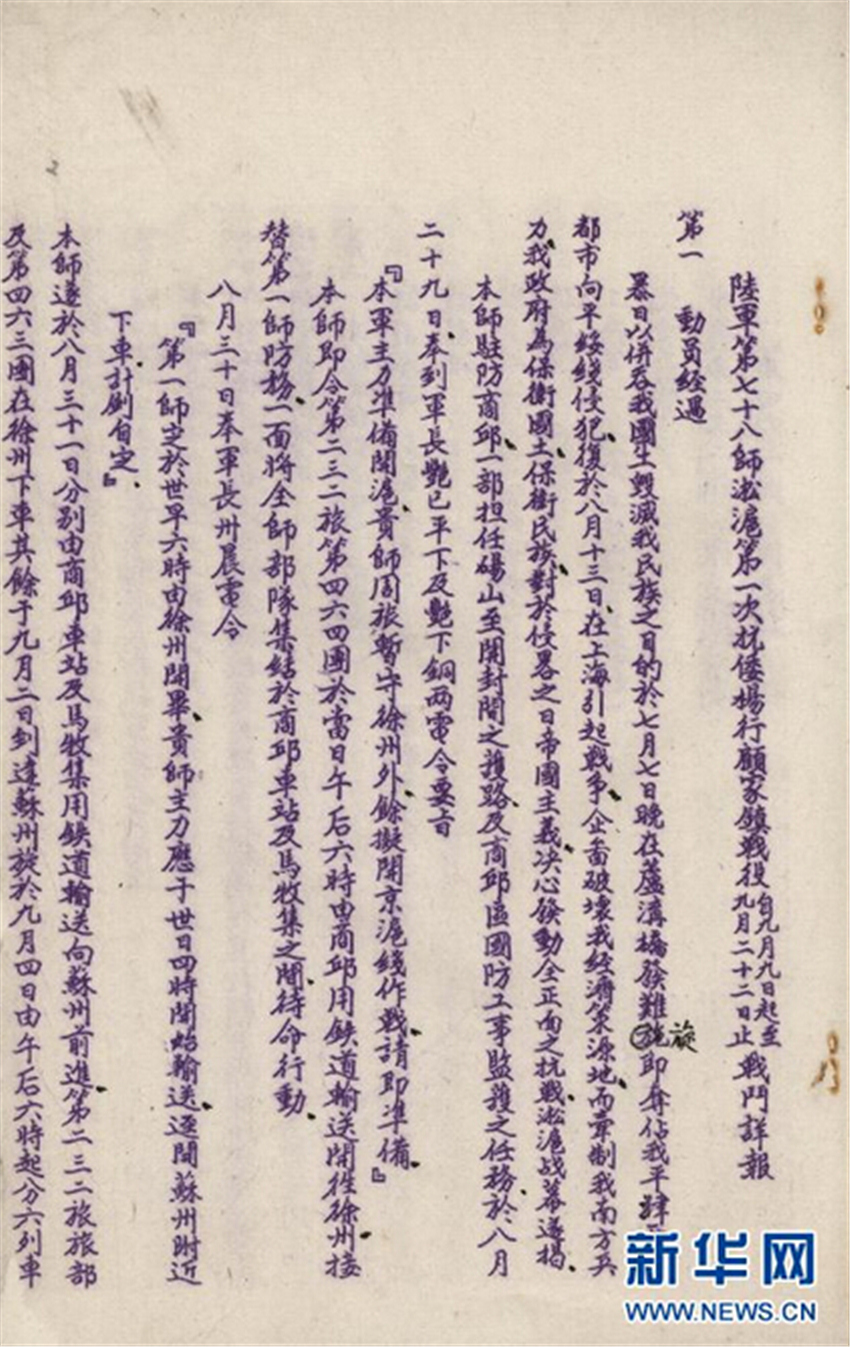 陸軍第七十八師淞滬第一次抗倭楊行顧家鎮戰役自九月九日起至九月二十二日止戰鬥詳報
第一 動員經過
暴日以併吞我國土毀滅我民族之目的於七月七日晚在蘆溝橋發難旋即奪佔我平肆
都市向平綏綫侵犯復於八月十三日在上海引起戰爭企畨破壞我經濟策源地而牽制我南方兵
力我政府為保衛國土保衛民族對於侵畧之日帝國主義决心發動全正面之抗戰淞滬战幕遂揭
本師駐防商邱一部担任碭山至開封間之護路及商邱區國防工事監護之任務於八月
二十九日奉到軍長艷已平下及艷下銅两電令要旨
『本軍主力準備開滬貴師周旅暫守徐州外餘擬開京滬綫作戰請即準備』
本師即令第二三二旅第四六四團於當日午后六時由商邱用鉄道輸送開往徐州接
替第一師防務一面將全師部隊集結於商邱車站及馬牧集之間待命行動
八月三十日奉軍長卅晨電令
『第一師定於世早六時由徐州開畢貴師主力應于世日四時開始輸送逕開蘇州附近
下車計劃自定』
本師遂於八月三十一日分別由商邱車站及馬牧集用鉄道輸送向蘇州前進第二三二旅旅部
及第四六三團在徐州下車其餘于九月二日到達蘇州旋於九月四日由午后六時起分六列車
新华网
WWW.NEWS.CN